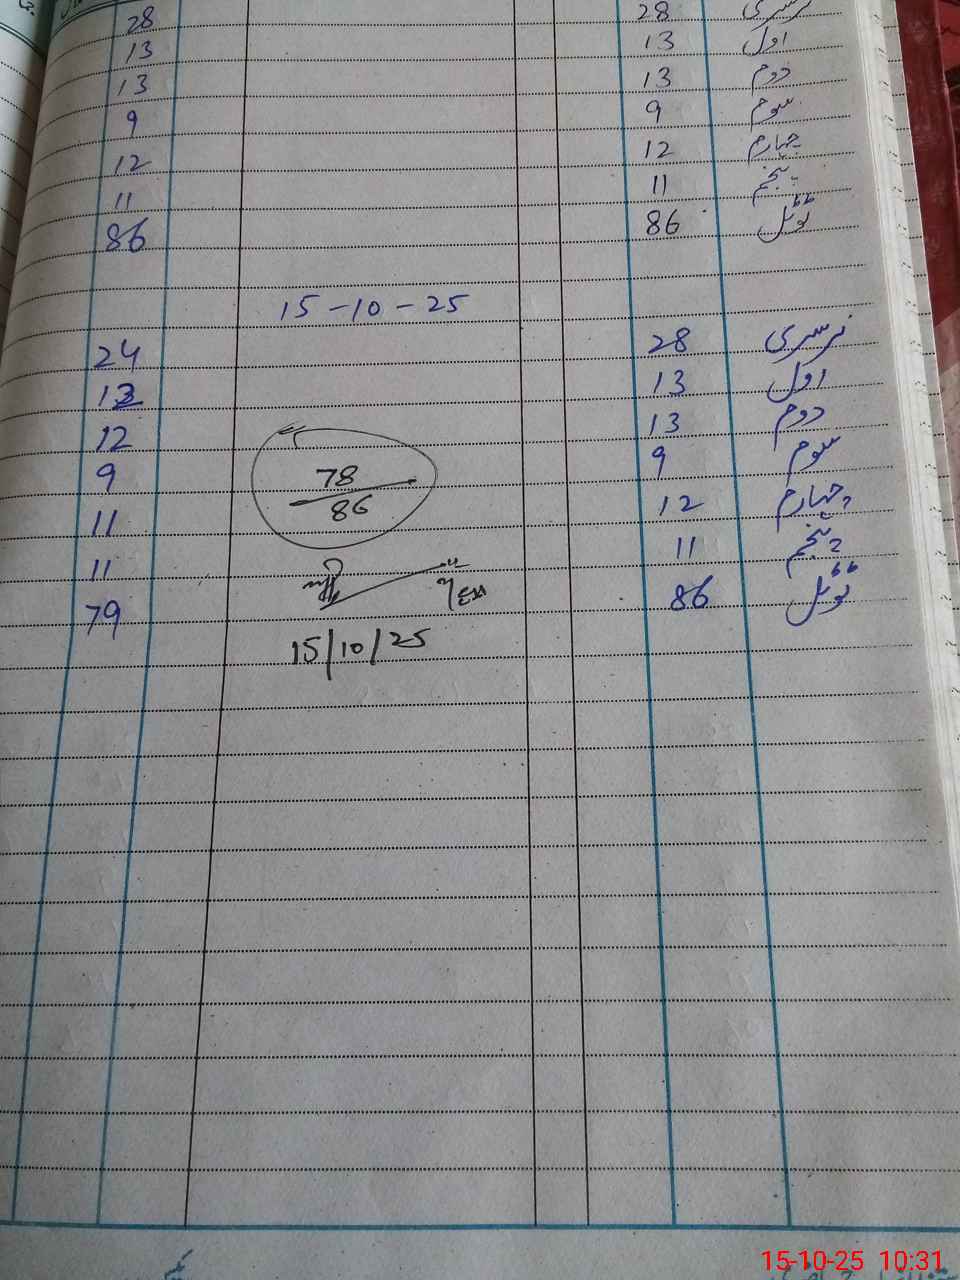 نرسری 28 28
اول 13 13
دوم 13 13
سوم 9 9
چہارم 12 12
پنجم 11 11
ٹوٹل 86 86
15-10-25
نرسری 28 24
اول 13 12
دوم 13 12
سوم 9 9
چہارم 12 11
پنجم 11 11
ٹوٹل 86 79
78
86
15/10/25
15-10-25 10:31